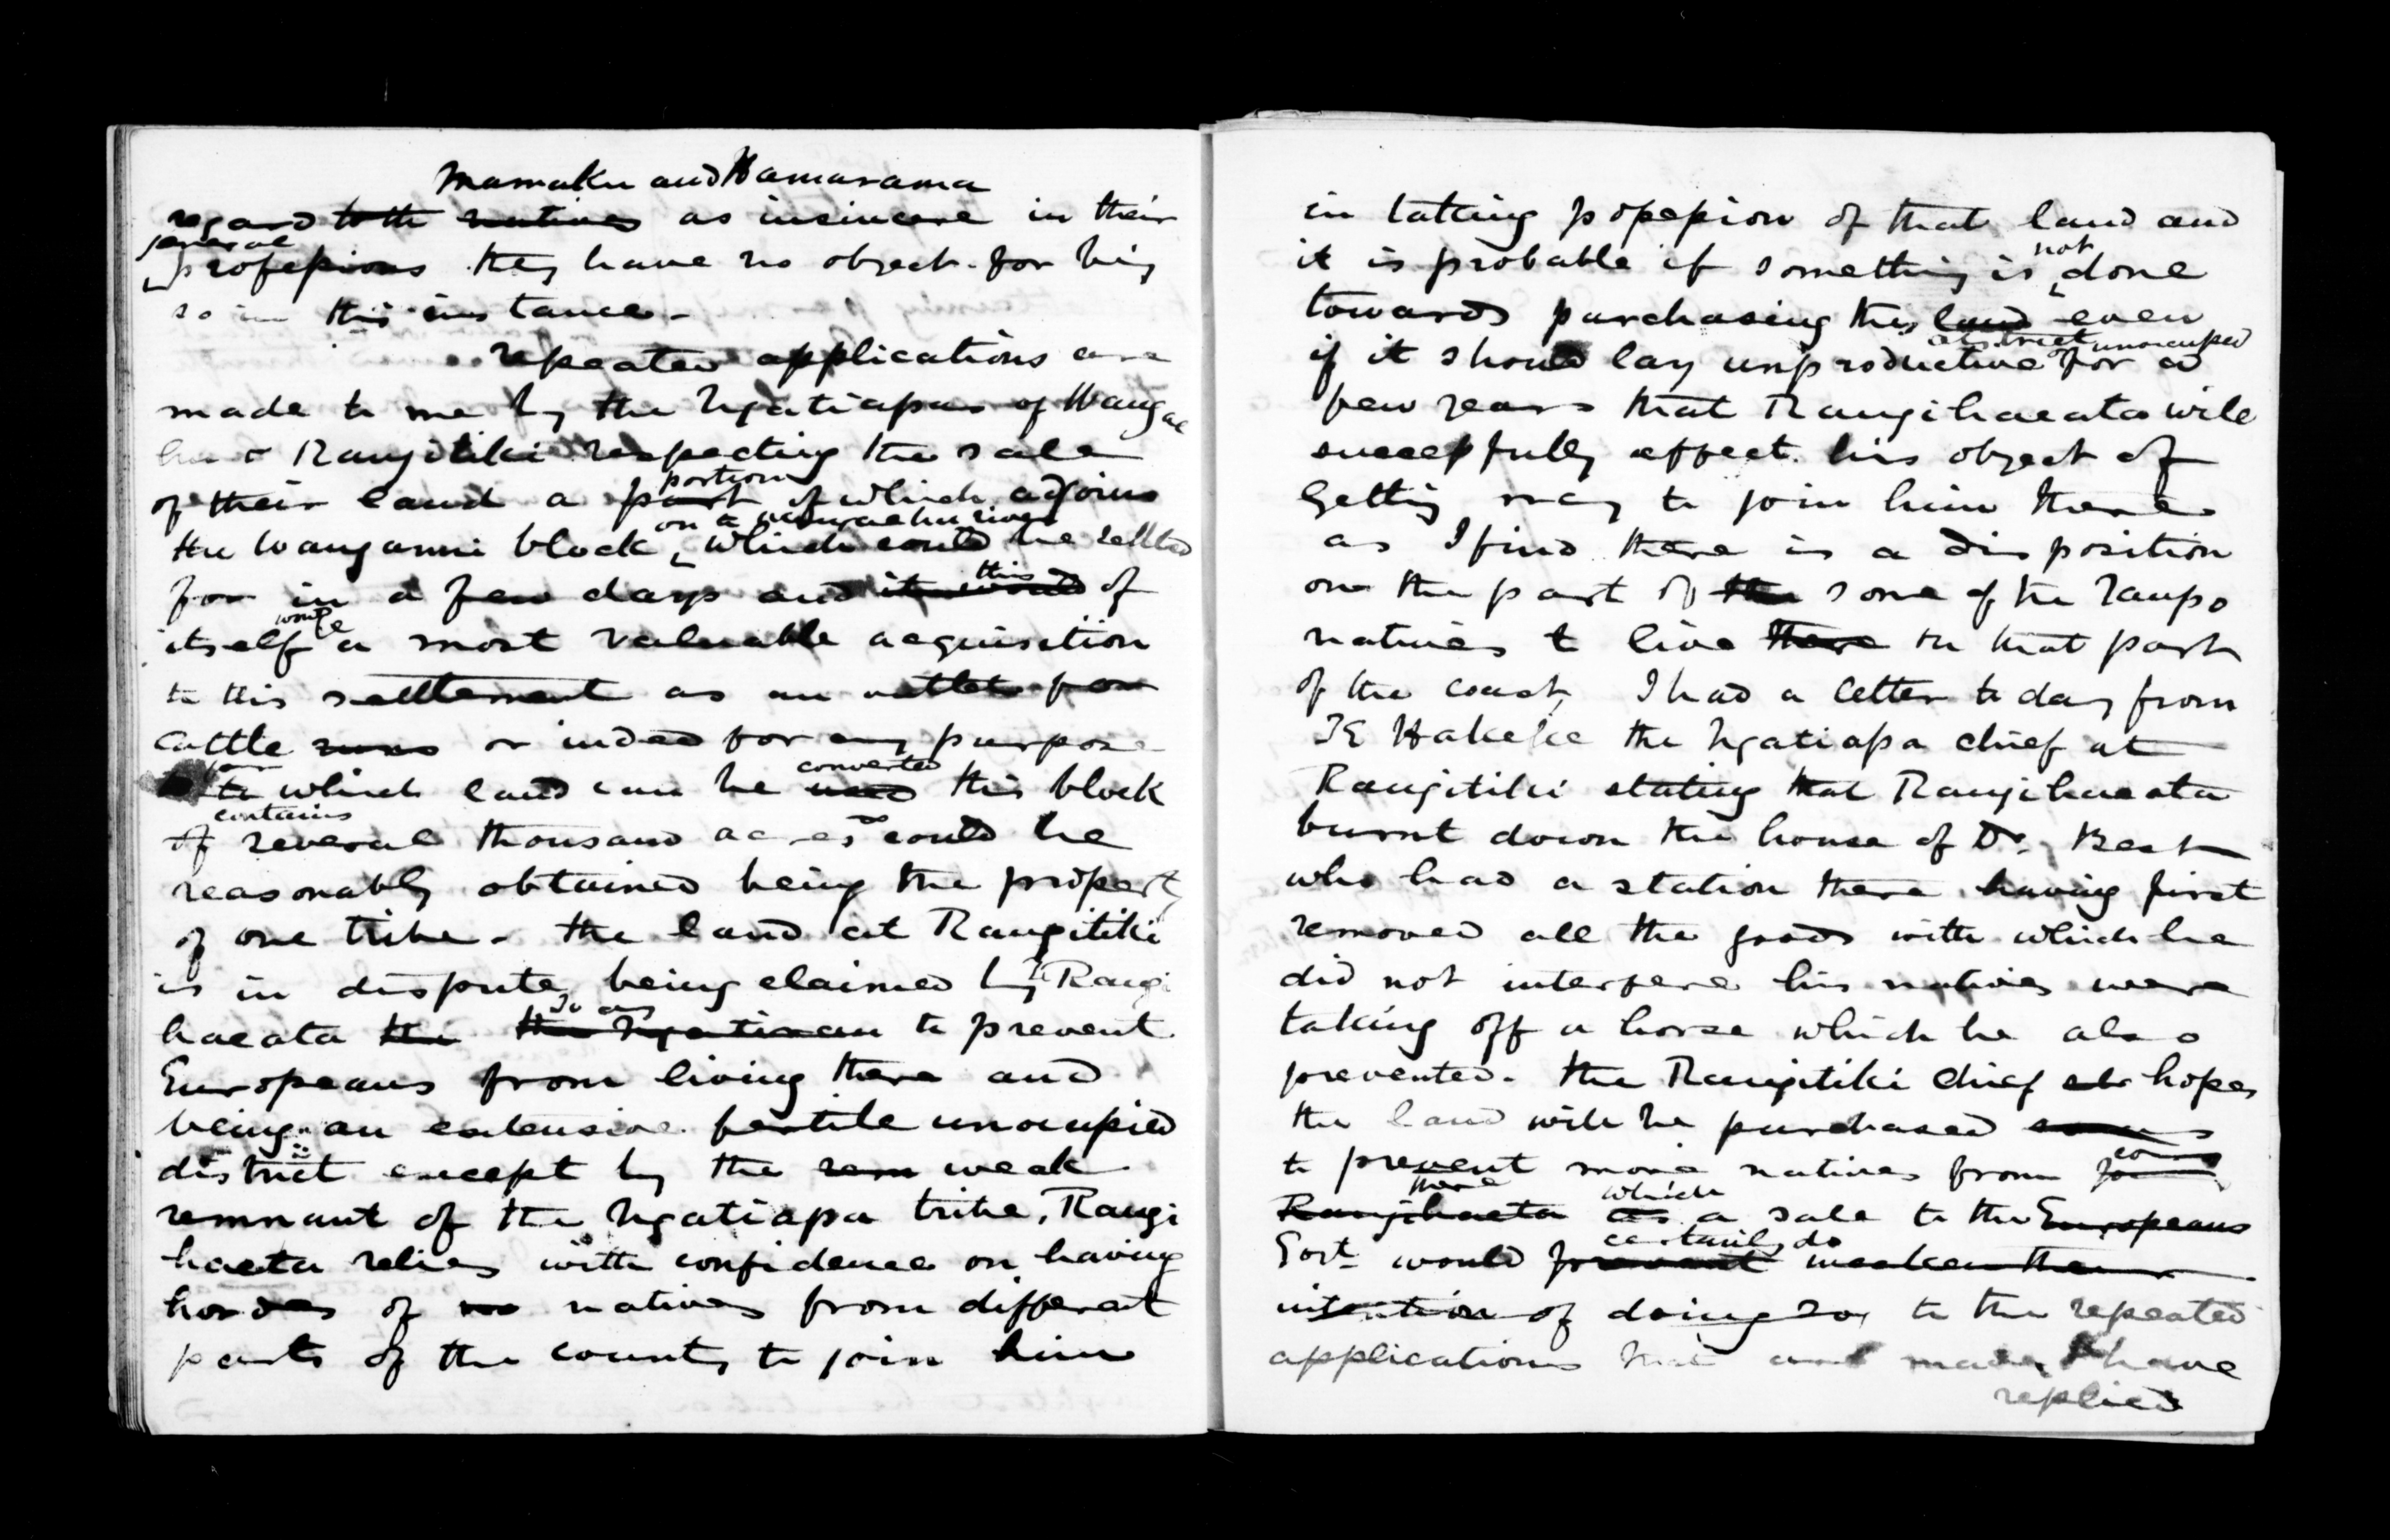 Mamaku and Hamarama
regard to the natives as insincere in their
general
professions they have no object for being
so in this instance -
repeated applications are
made to me by the Ngatiapas of Wangae
hu & Rangitiki respecting the sale
portion
of their land a part of which adjoins
on the river
the Wanganui block, which could be settled
this
for in a few days and it would of
would be
itself a most valuable acquisition
to this settlement as an outlet for
cattle runs or indeed for any purpose
for converted
to which land can be used this block
contains
of several thousand acres & could be
reasonably obtained being the property
of one tribe - the land at Rangitiki
is in dispute being claimed by Rangi
so as
haeata the the Ngatiraukau to prevent
Europeans from living there and
being an extensive fertile unocupied
district except by the rem weak
remnant of the Ngatiapa tribe, Rangi
haeta relies with confidence on having
hordes of natives from different
parts of the county to join him
in taking possession of that land and
not
it is probable if something is done
towards purchasing this land even
district or unoccupied
if it should lay unproductive for a
few years that Rangihaeata will
successfully effect his object of
getting many to join him there
as I find there is a disposition
on the part of the some of the Taupo
natives to live there on that part
of the coast, I had a letter to day from
TE Hakeke the Ngatiapa chief at
Rangitiki stating that Rangihaeata
burnt down the house of Dr. Best
who had a station there having first
removed all the goods with which he
did not interfere his natives were
taking off a horse which he also
prevented - the Rangitiki chief hopes
the land will be purchased
to prevent more natives from
there which
Rangihaeta as a sale to the Europeans
certainly do
Govt would prevent weaken their
intention of doing so, to the repeated
applications that are made I have
replied